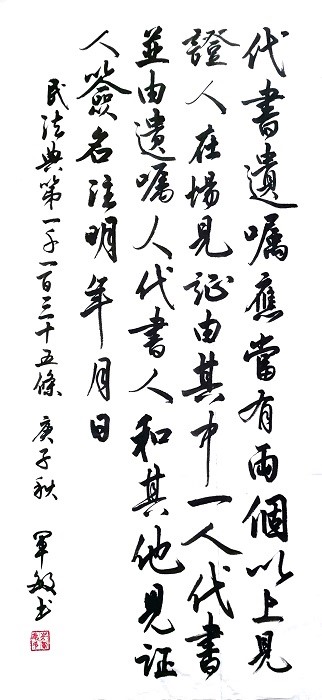 代書遺囑應當有兩個以上見
證人在場見证由其中一人代書
並由遺囑人代書人和其他見证
人簽名注明年月日
民法典第一千一百三十五條 庚子秋 軍敏书